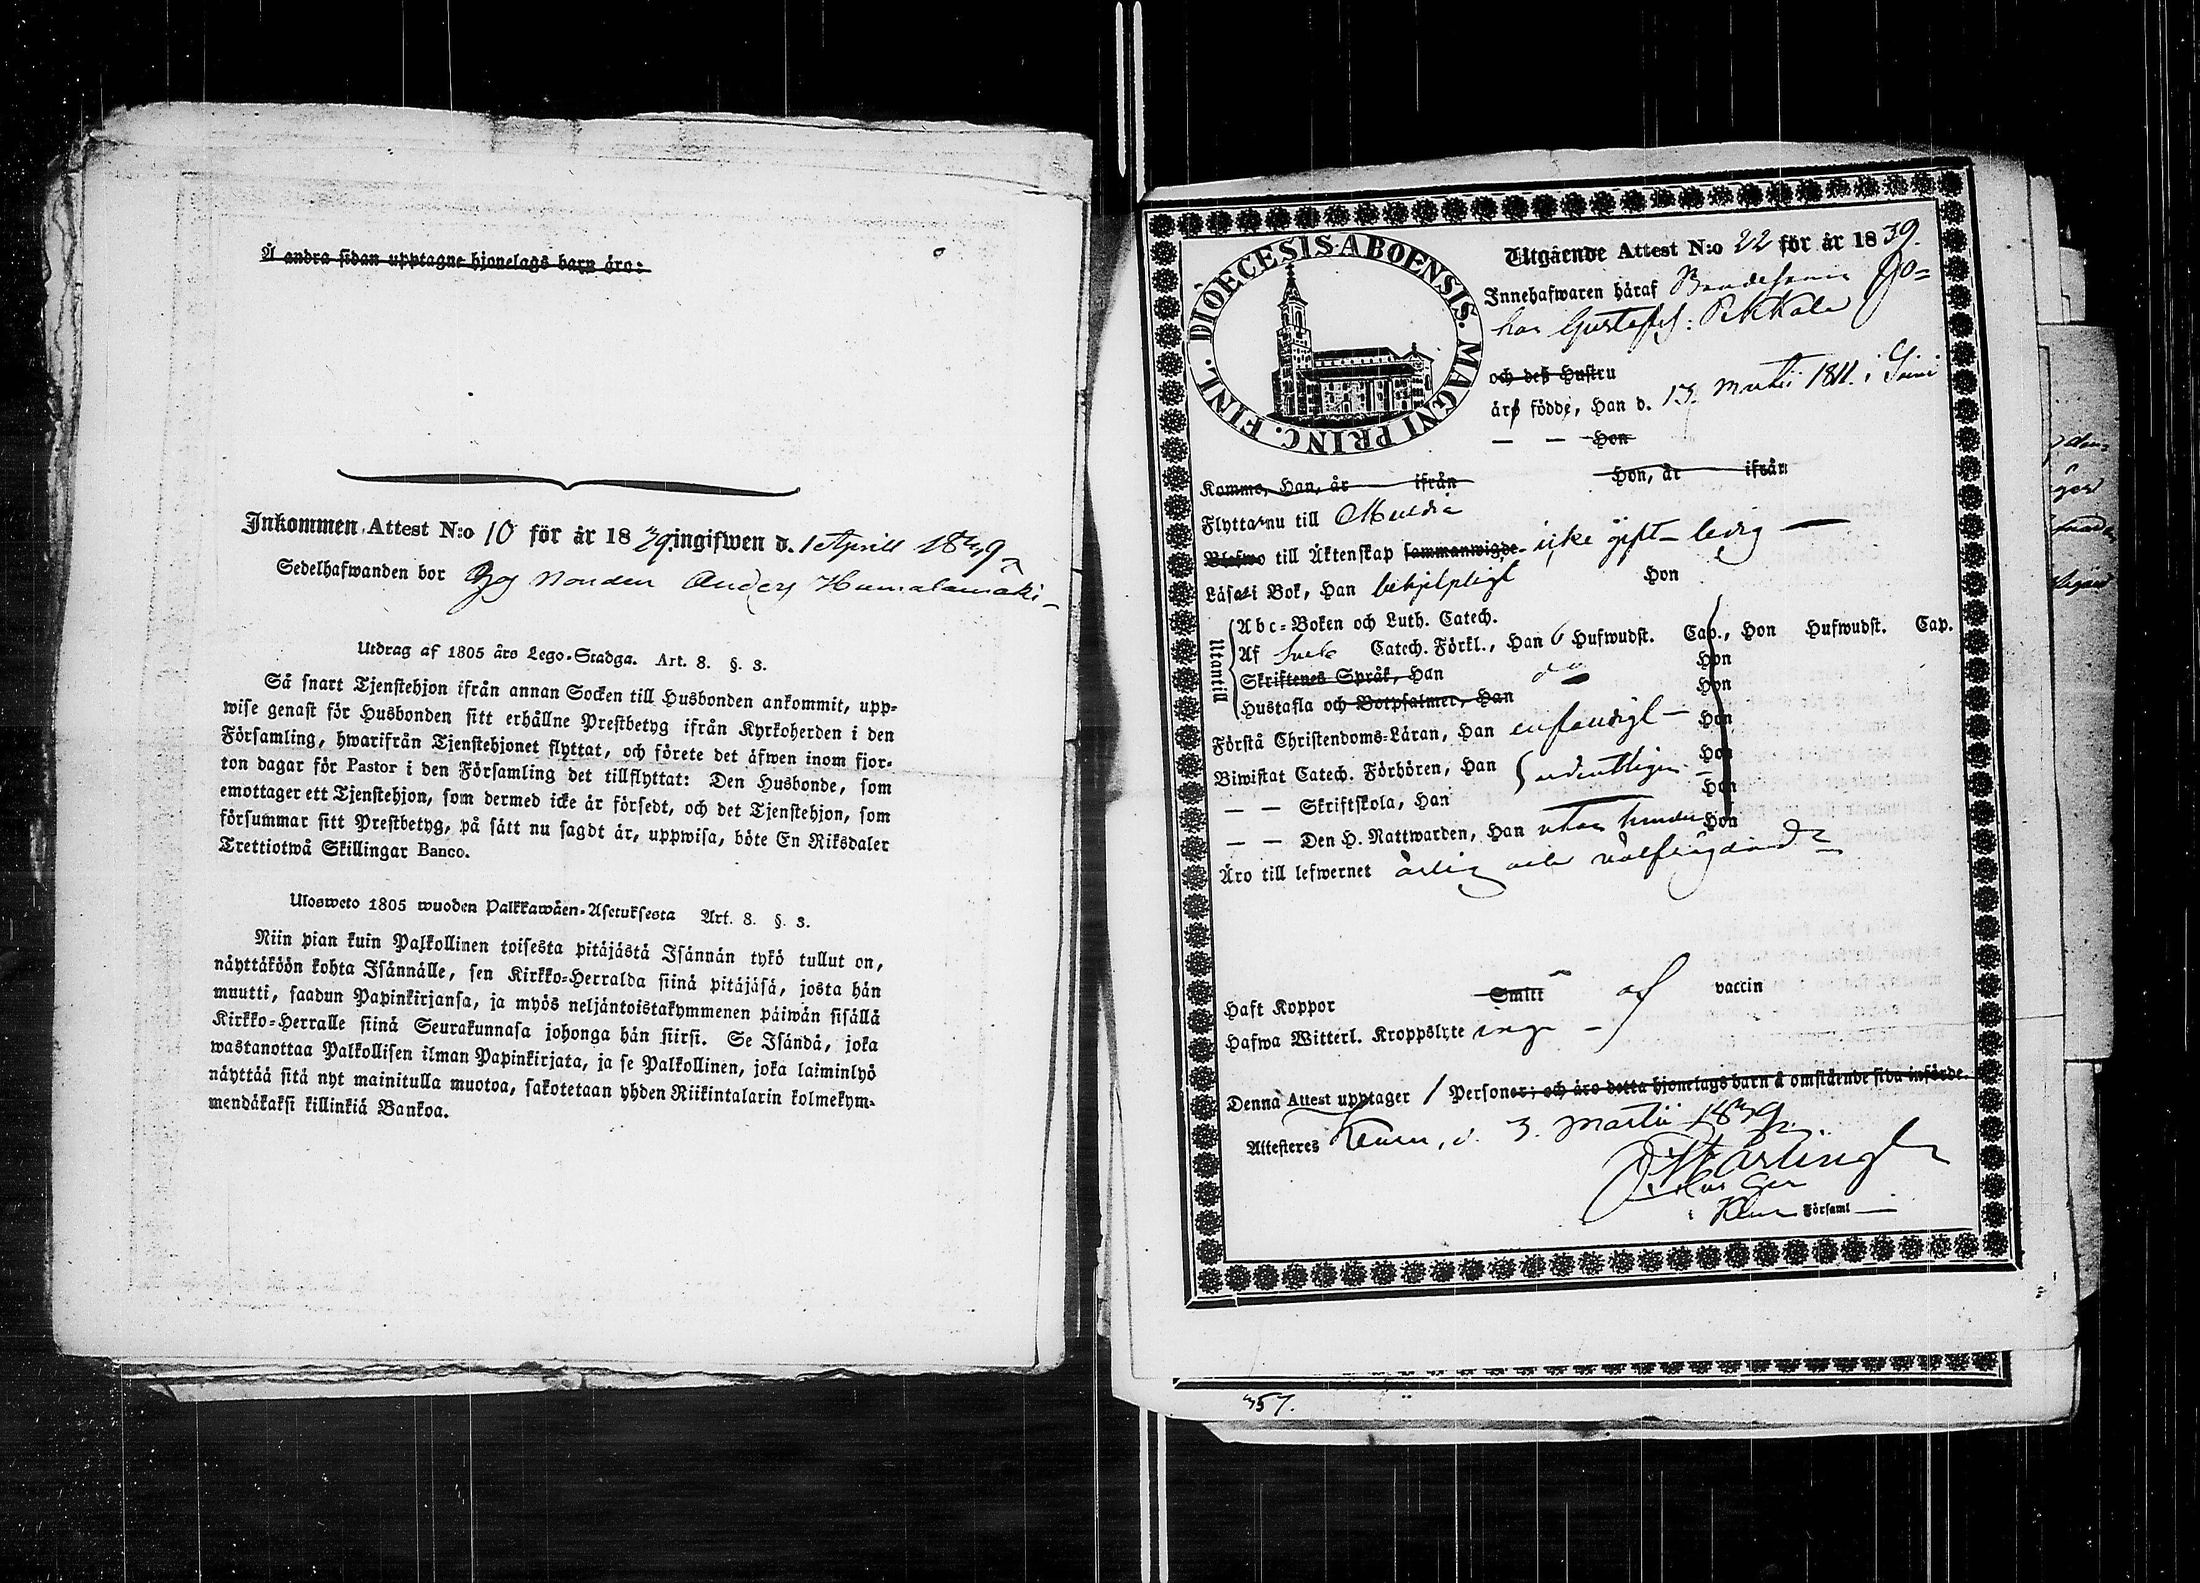 Å andra sidan upptagne hjonelags barn äro:
Inkommen Attest N:o 10 för år 1839 ingifwen d. 1 Aprill 1839
Sedelhafwanden bor hos Bonden Anders Humalamäki
Utdrag af 1805 års Lego-Stadga. Art. 8. §. 3.
Så snart Tjenstehjon ifrån annan Socken till Husbonden ankommit, upp-
wise genast för Husbonden sitt erhållne Prestbetyg ifrån Kyrkoherden i den
Församling, hwarifrån Tjenstehjonet flyttat, och förete det äfwen inom fjor-
ton dagar för Pastor i den Församling det tillflyttat: Den Husbonde, som
emottager ett Tjenstehjon, som dermed icke är försedt, och det Tjenstehjon, som
försummar sitt Prestbetyg, på sätt nu sagdt är, uppwisa, böte En Riksdaler
Trettiotwå Skillingar Banco.
Ulosweto 1805 wuoden Palkkawäen-Asetuksesta Art. 8. §. 3.
Niin pian kuin Palkollinen toisesta pitäjästä Isännän tykö tullut on,
näyttäköön kohta Isännälle, sen Kirkko-Herralda siinä pitäjäsä, josta hän
muutti, saadun Papinkirjansa, ja myös neljäntoistakymmenen päiwän sisällä
Kirkko-Herralle siinä Seurakunnasa johonga hän siirsi. Se Isändä, joka
wastanottaa Palkollisen ilman Papinkirjata, ja se Palkollinen, joka laiminlyö
näyttää sitä nyt mainitulla muotoa, sakotetaan yhden Riikintalarin kolmekym-
mendäkaksi killinkiä Bankoa.
DIOECESIS ABOENSIS. MAGNI PRINC. FINL.
Utgående Attest N:o 22 för år 1839.
Innehafwaren häraf Bondesonen Jo-
han Gustafss: Pekkala
och deß Hustru
äro födde, Han d. 13 Martii 1811. i
— — Hon
Komme, Han, år ifrån Hon, år ifrån
Flytta nu till Muldia
Blefwo till Äktenskap sammanwigde icke gift ledig —
Läsa i Bok, Han behjelpligt Hon
Utantill
Abc-Boken och Luth. Catech.
Af Sveb Catech. Förkl., Han 6 Hufwudst. Cap., Hon Hufwudst. Cap.
Skriftenes Språk, Han Hon
Hustafla och Botpsalmer, Han Hon
Förstå Christendoms-Läran, Han enfaldigt — Hon
Biwistat Catech. Förhören, Han ordentligen Hon
— — Skriftskola, Han Hon
— — Den H. Nattwarden, Han utan hinder Hon
Äro till lefwernet ärlig och välfrägdad
Haft Koppor Smitt af vaccin
Hafwa Witterl. Kroppslyte inga
Denna Attest upptager 1 Personer; och äro detta hjonelags barn å omstående sida införde.
Attesteras Keuru, d. 3. Martii 1839.
i Keuru Församl
357.